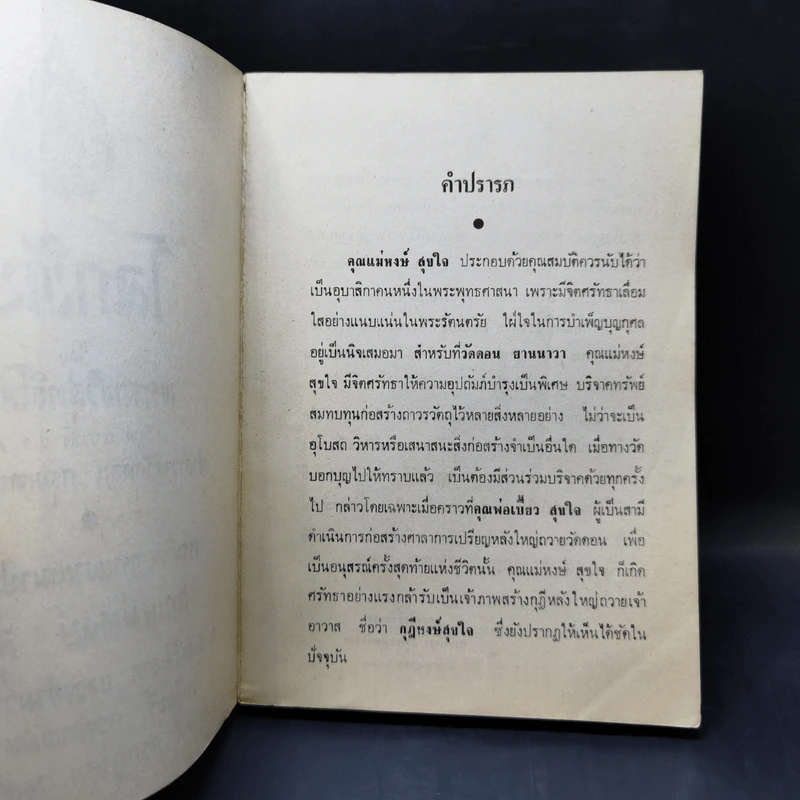 คำปรารภ
●
คุณแม่หงษ์ สุขใจ ประกอบด้วยคุณสมบัติควรนับได้ว่า
เป็นอุบาสิกาคนหนึ่งในพระพุทธศาสนา เพราะมีจิตศรัทธาเลื่อม
ใสอย่างแนบแน่นในพระรัตนตรัย ใฝ่ใจในการบำเพ็ญบุญกุศล
อยู่เป็นนิจเสมอมา สำหรับที่วัดดอน ยานนาวา คุณแม่หงษ์
สุขใจ มีจิตศรัทธาให้ความอุปถัมภ์บำรุงเป็นพิเศษ บริจาคทรัพย์
สมทบทุนก่อสร้างถาวรวัตถุไว้หลายสิ่งหลายอย่าง ไม่ว่าจะเป็น
อุโบสถ วิหารหรือเสนาสนะสิ่งก่อสร้างจำเป็นอื่นใด เมื่อทางวัด
บอกบุญไปให้ทราบแล้ว เป็นต้องมีส่วนร่วมบริจาคด้วยทุกครั้ง
ไป กล่าวโดยเฉพาะเมื่อคราวที่คุณพ่อเบี้ยว สุขใจ ผู้เป็นสามี
ดำเนินการก่อสร้างศาลาการเปรียญหลังใหญ่ถวายวัดดอน เพื่อ
เป็นอนุสรณ์ครั้งสุดท้ายแห่งชีวิตนั้น คุณแม่หงษ์ สุขใจ ก็เกิด
ศรัทธาอย่างแรงกล้ารับเป็นเจ้าภาพสร้างกุฏีหลังใหญ่ถวายเจ้า
อาวาส ชื่อว่า กุฏีหงษ์สุขใจ ซึ่งยังปรากฏให้เห็นได้ชัดใน
ปัจจุบัน